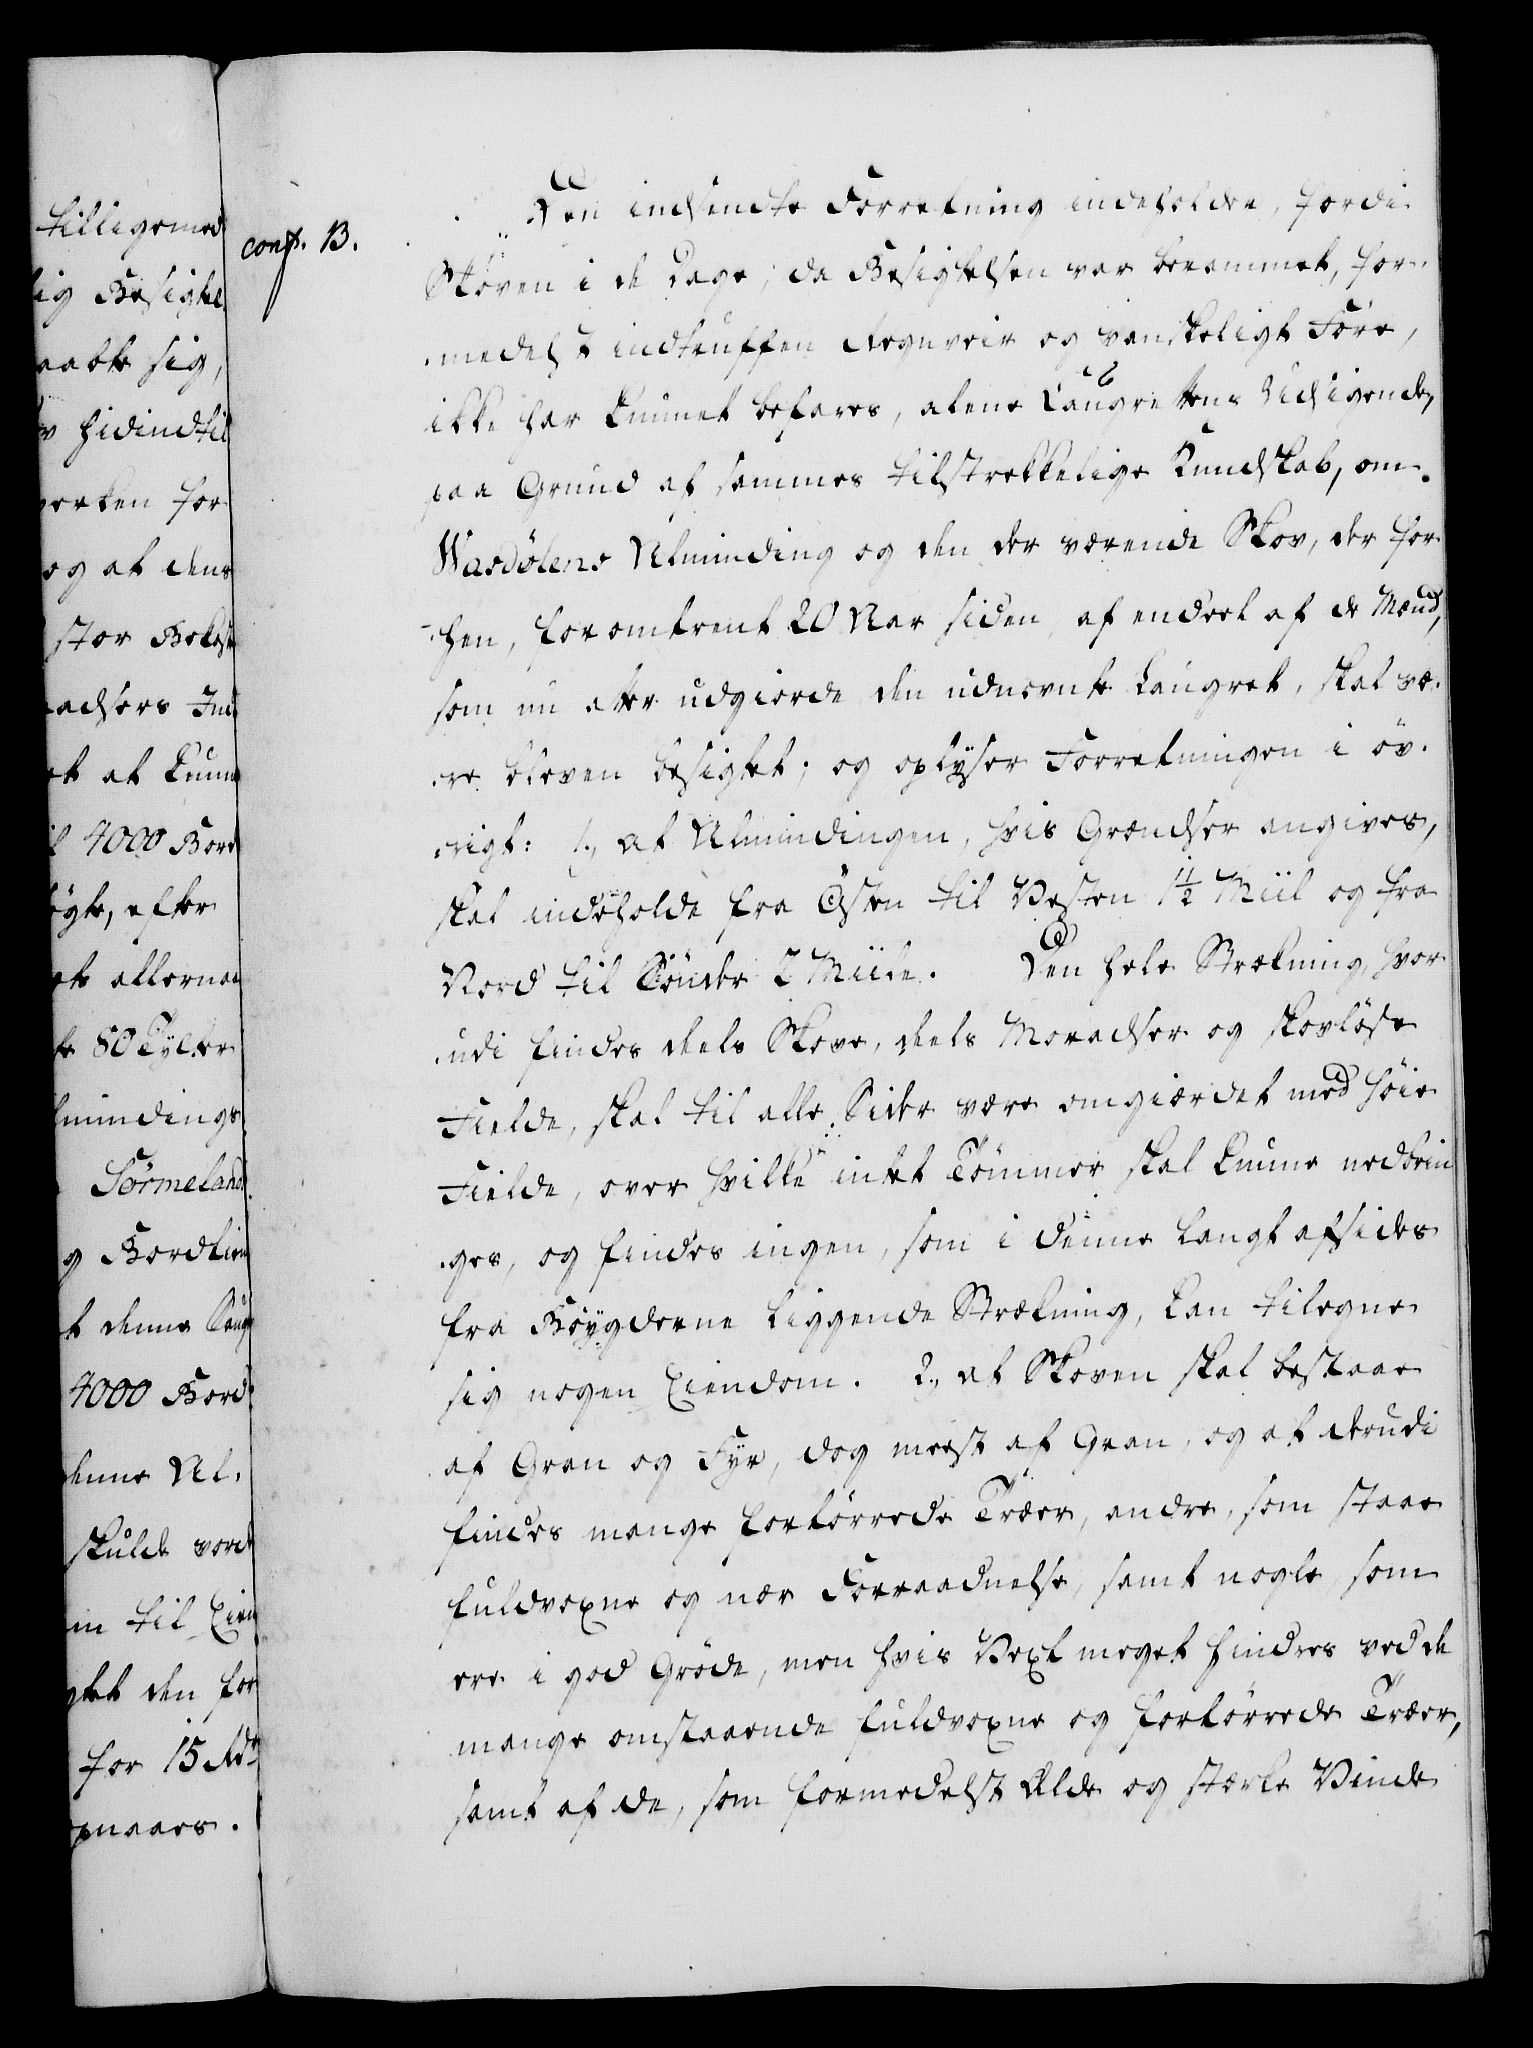 tilligemed
lig Besigtel
aabte sig,
v hidindtil
verken for
og at dens
stor Bekost
adsers Ind
et at kunne
il 4000 Bord
øgte, efter
te 80 Tylter
lmindings
Sørmeland
g Bordtien
t denne Skov
4000 Bord
denne Al-
skulde vorde
in til Eien
gtet den for
for 15 Rdr
pnaaes.
conf. B.
Den indsendte Forretning indeholder, fordi
Skoven i de Dage, da Besigtelsen var berammet, for-
medelst indtruffen Regnveir og vanskeligt Føre,
ikke har kunnet befares, alene Laugrettens Udsigende,
paa Grund af sammes tilstrekkelige Kundskab, om
Wasdølens Alminding og den der værende Skov, der for
hen, for omtrent 20 Aar siden, af endeel af de Mænd,
som nu atter udgiorde den udnevnte Laugret, skal væ-
re bleven besigtet; og oplyser Forretningen i øv-
rigt: 1., at Almindingen, hvis Grændser angives,
skal indeholde fra Østen til Vesten 1 1/2 Miil og fra
Nord til Sønder 2 Miile. Den hele Strækning, hvor
udi findes deels Skove, deels Moradser og skovløse
Fielde, skal til alle Sider være omgiærdet med høie
Fielde, over hvilke intet Tømmer skal kunne nedbrin
ges, og findes ingen, som i denne langt afsides
fra Bøygderne liggende Strækning, kan tilegne
sig nogen Eiendom. 2., at Skoven skal bestaae
af Gran og Fyr, dog meest af Gran, og at derudi
findes mange fortørrede Træer, andre, som staae
fuldvoxne og nær Forraadnelse, samt nogle, som
ere i god Grøde, men hvis Vext meget hindres ved de
mange omstaaende fuldvoxne og fortørrede Træer,
samt af de, som formedelst Ælde og stærke Vinde